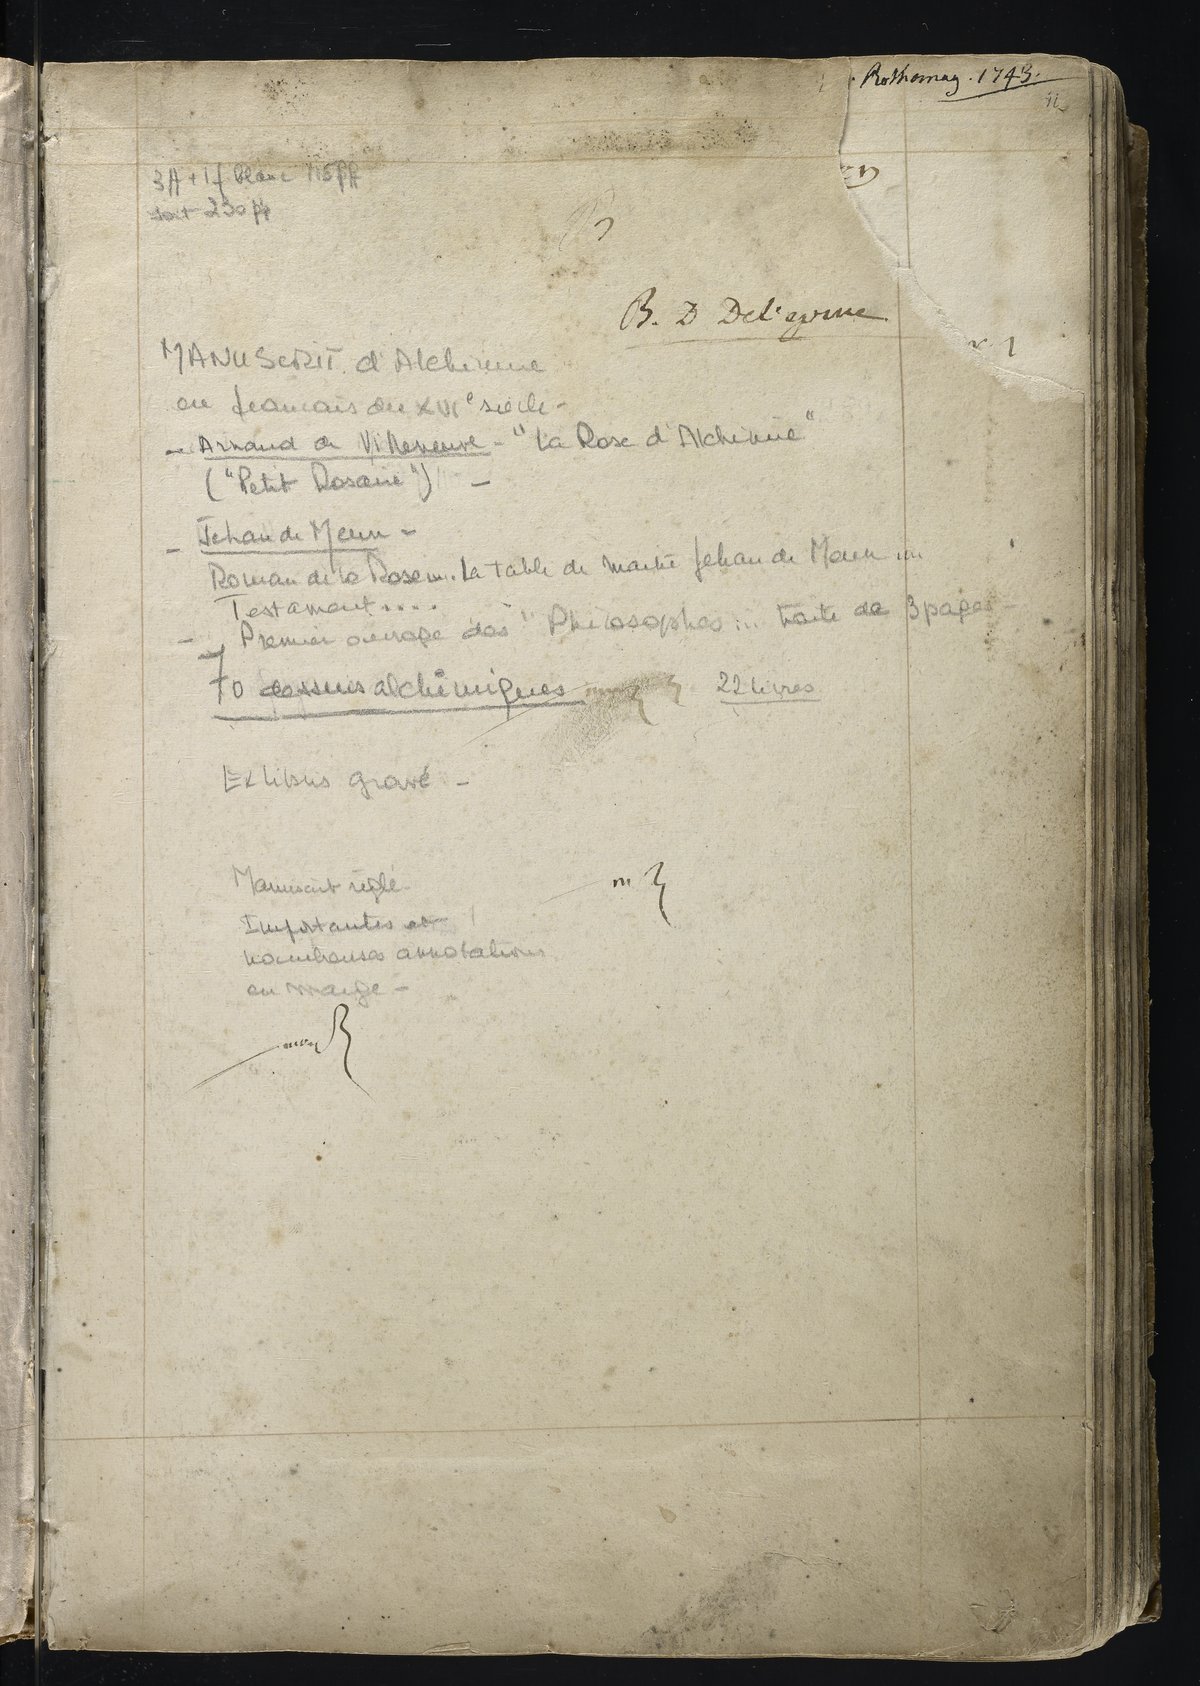 Rothomag. 1743.
3ff + 1f blanc 115ff
soit 230 pp
B. D Del'epine
MANUSCRIT d'Alchimie
en francais du XVIe siècle -
- Arnaud de Villeneuve - "La Rose d'Alchimie"
("Petit Rosaire") -
- Jehan de Meun -
Roman de la Rose ... La table de maitre Jehan de Meun ...
Testament ....
- Premier ouvrage des "Philosophes ... traité de 3 pages -
- 70 dessins alchimiques 22 livres
Ex libris gravé -
Manuscrit réglé -
Importantes et
nombreuses annotations
en marge -